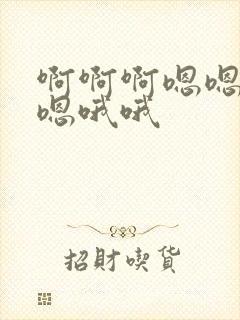 啊啊啊嗯嗯
嗯哦哦
招財喫貨